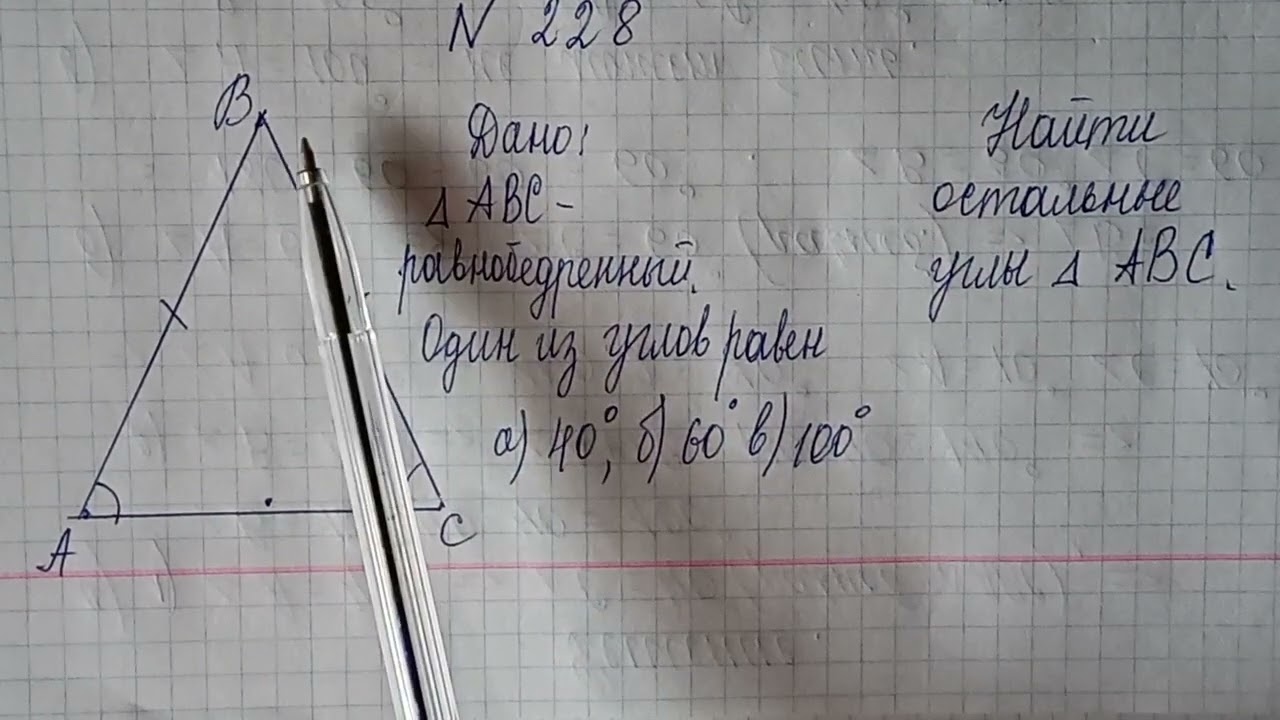 N 228
B
Дано:
Δ ABC -
равнобедренный.
Один из углов равен
а) 40°, б) 60° в) 100°
Найти
остальные
углы Δ ABC.
A
C